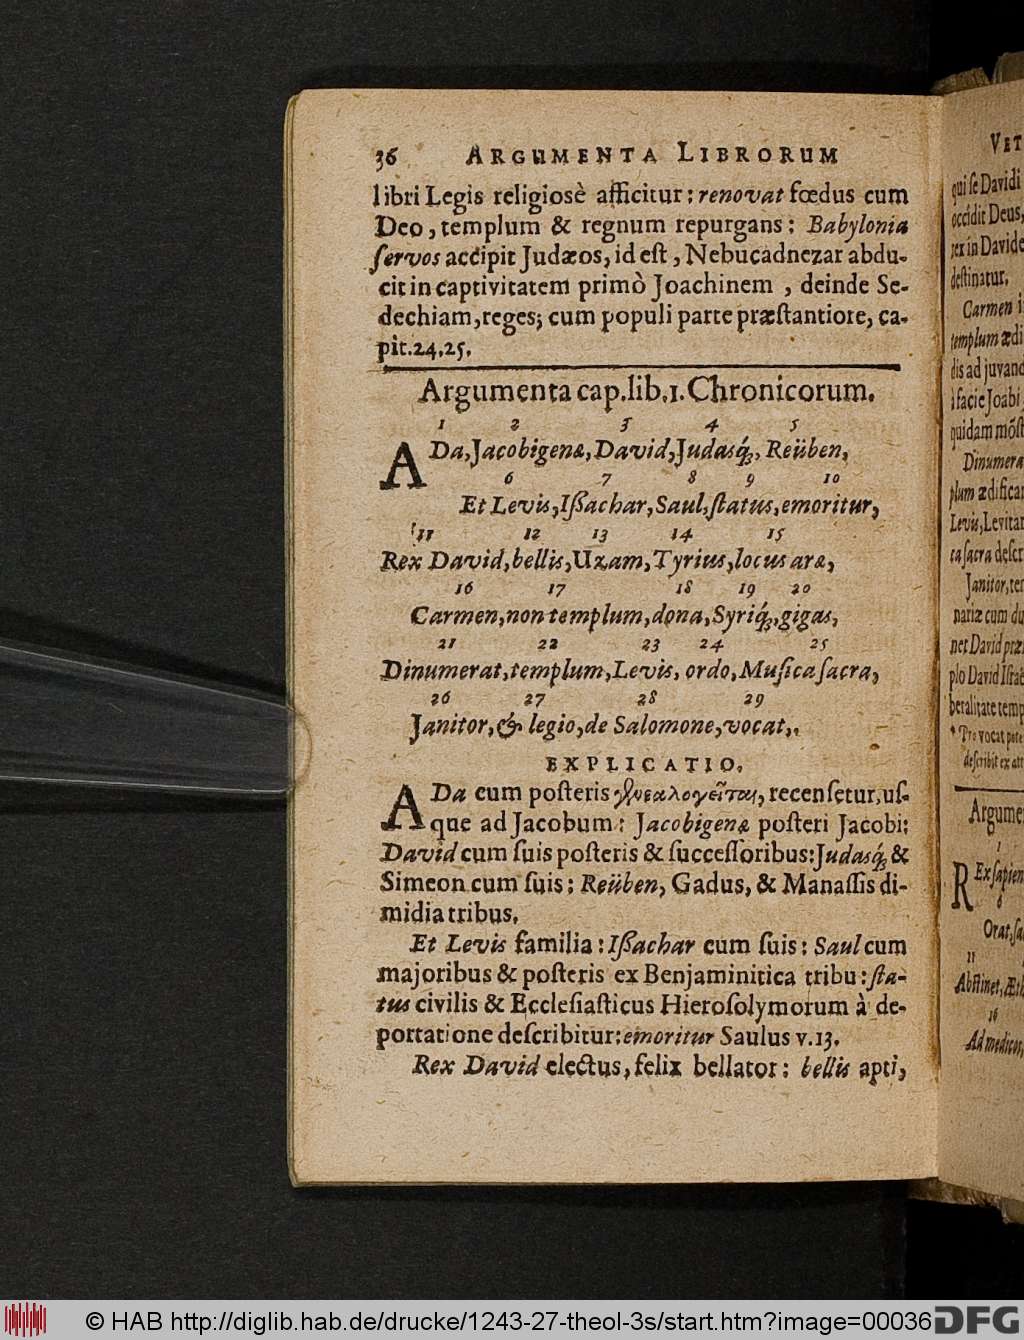 36 ARGUMENTA LIBRORUM
libri Legis religiosè afficitur: renovat fœdus cum
Deo, templum & regnum repurgans: Babylonia
ſervos accipit Judæos, id eſt, Nebucadnezar abdu-
cit in captivitatem primò Joachinem, deinde Se-
dechiam, reges; cum populi parte præſtantiore, ca-
pit. 24. 25.
Argumenta cap. lib. 1. Chronicorum.
1 2 3 4 5
ADa, Jacobigenæ, David, Judasq́;, Reüben,
6 7 8 9 10
Et Levis, Iſſachar, Saul, ſtatus, emoritur,
11 12 13 14 15
Rex David, bellis, Uzam, Tyrius, locus aræ,
16 17 18 19 20
Carmen, non templum, dona, Syriq́;, gigas,
21 22 23 24 25
Dinumerat, templum, Levis, ordo, Muſica ſacra,
26 27 28 29
Janitor, & legio, de Salomone, vocat,.
EXPLICATIO.
ADa cum poſteris γενεαλογεῖται, recenſetur, uſ-
que ad Jacobum: Jacobigenæ poſteri Jacobi:
David cum ſuis poſteris & ſucceſſoribus: Judasq́; &
Simeon cum ſuis: Reüben, Gadus, & Manaſſis di-
midia tribus.
Et Levis familia: Iſſachar cum ſuis: Saul cum
majoribus & poſteris ex Benjaminitica tribu: ſta-
tus civilis & Eccleſiaſticus Hieroſolymorum à de-
portatione deſcribitur: emoritur Saulus v. 13.
Rex David electus, felix bellator: bellis apti,
VET
qui ſe Davidi
occidit Deus,
rex in Davide
deſtinatur.
Carmen i
templum ædi
dis ad juvand
facie Joabi
quidam mõſt
Dinumera
plum ædificar
Levis, Levitar
ta ſacra deſcr
Janitor, ter
nariæ cum du
net David præ
plo David Iſraë
beralitate temp
vocat
deſcribit ex
Argume
1
REx ſapien
6
Orat, ſa
11
Abſtinet, Æth
16
Ad medicos,
© HAB http://diglib.hab.de/drucke/1243-27-theol-3s/start.htm?image=00036
DFG